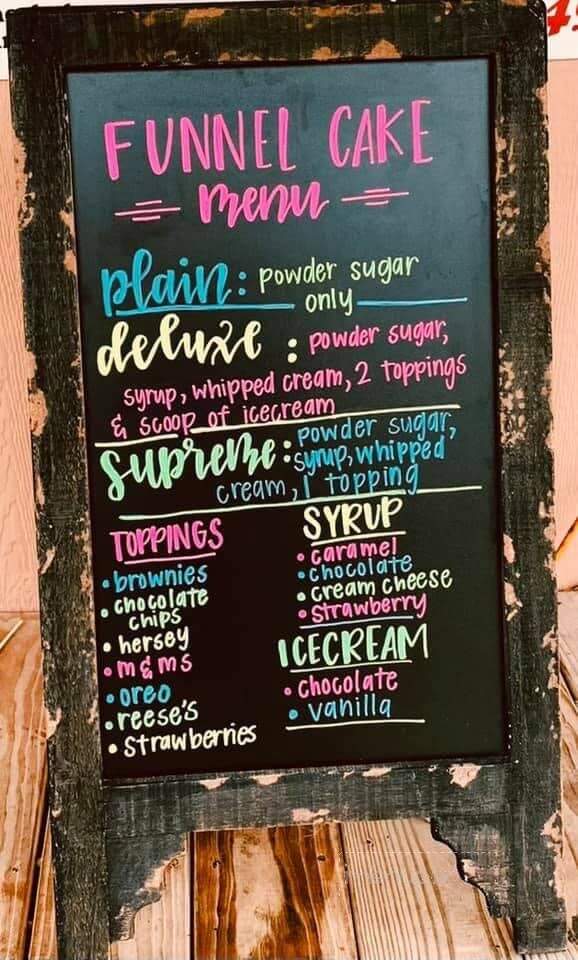 FUNNEL CAKE
menu
plain: powder sugar
only
deluxe : powder sugar,
syrup, whipped cream, 2 toppings
& scoop of icecream
supreme: powder sugar,
syrup, whipped
cream, 1 topping
TOPPINGS
• brownies
• chocolate
chips
• hersey
• m&ms
• oreo
• reese's
• strawberries
SYRUP
• caramel
• chocolate
• cream cheese
• strawberry
ICECREAM
• chocolate
• vanilla